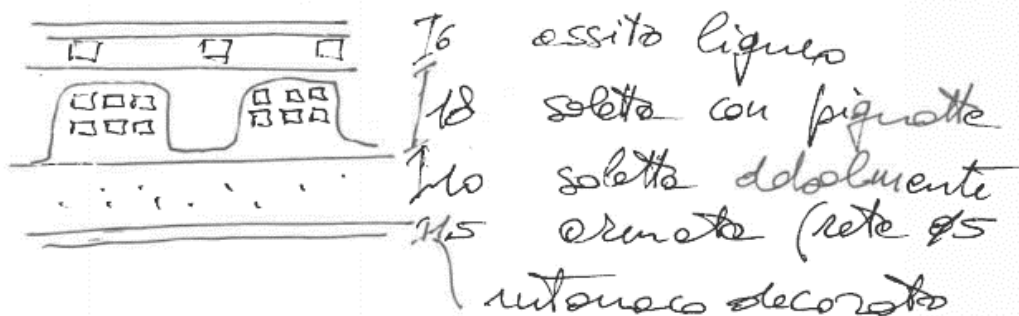 6 assito ligneo
18 soletta con pignatte
10 soletta debolmente
1.5 armata (rete ø5
intonaco decorato